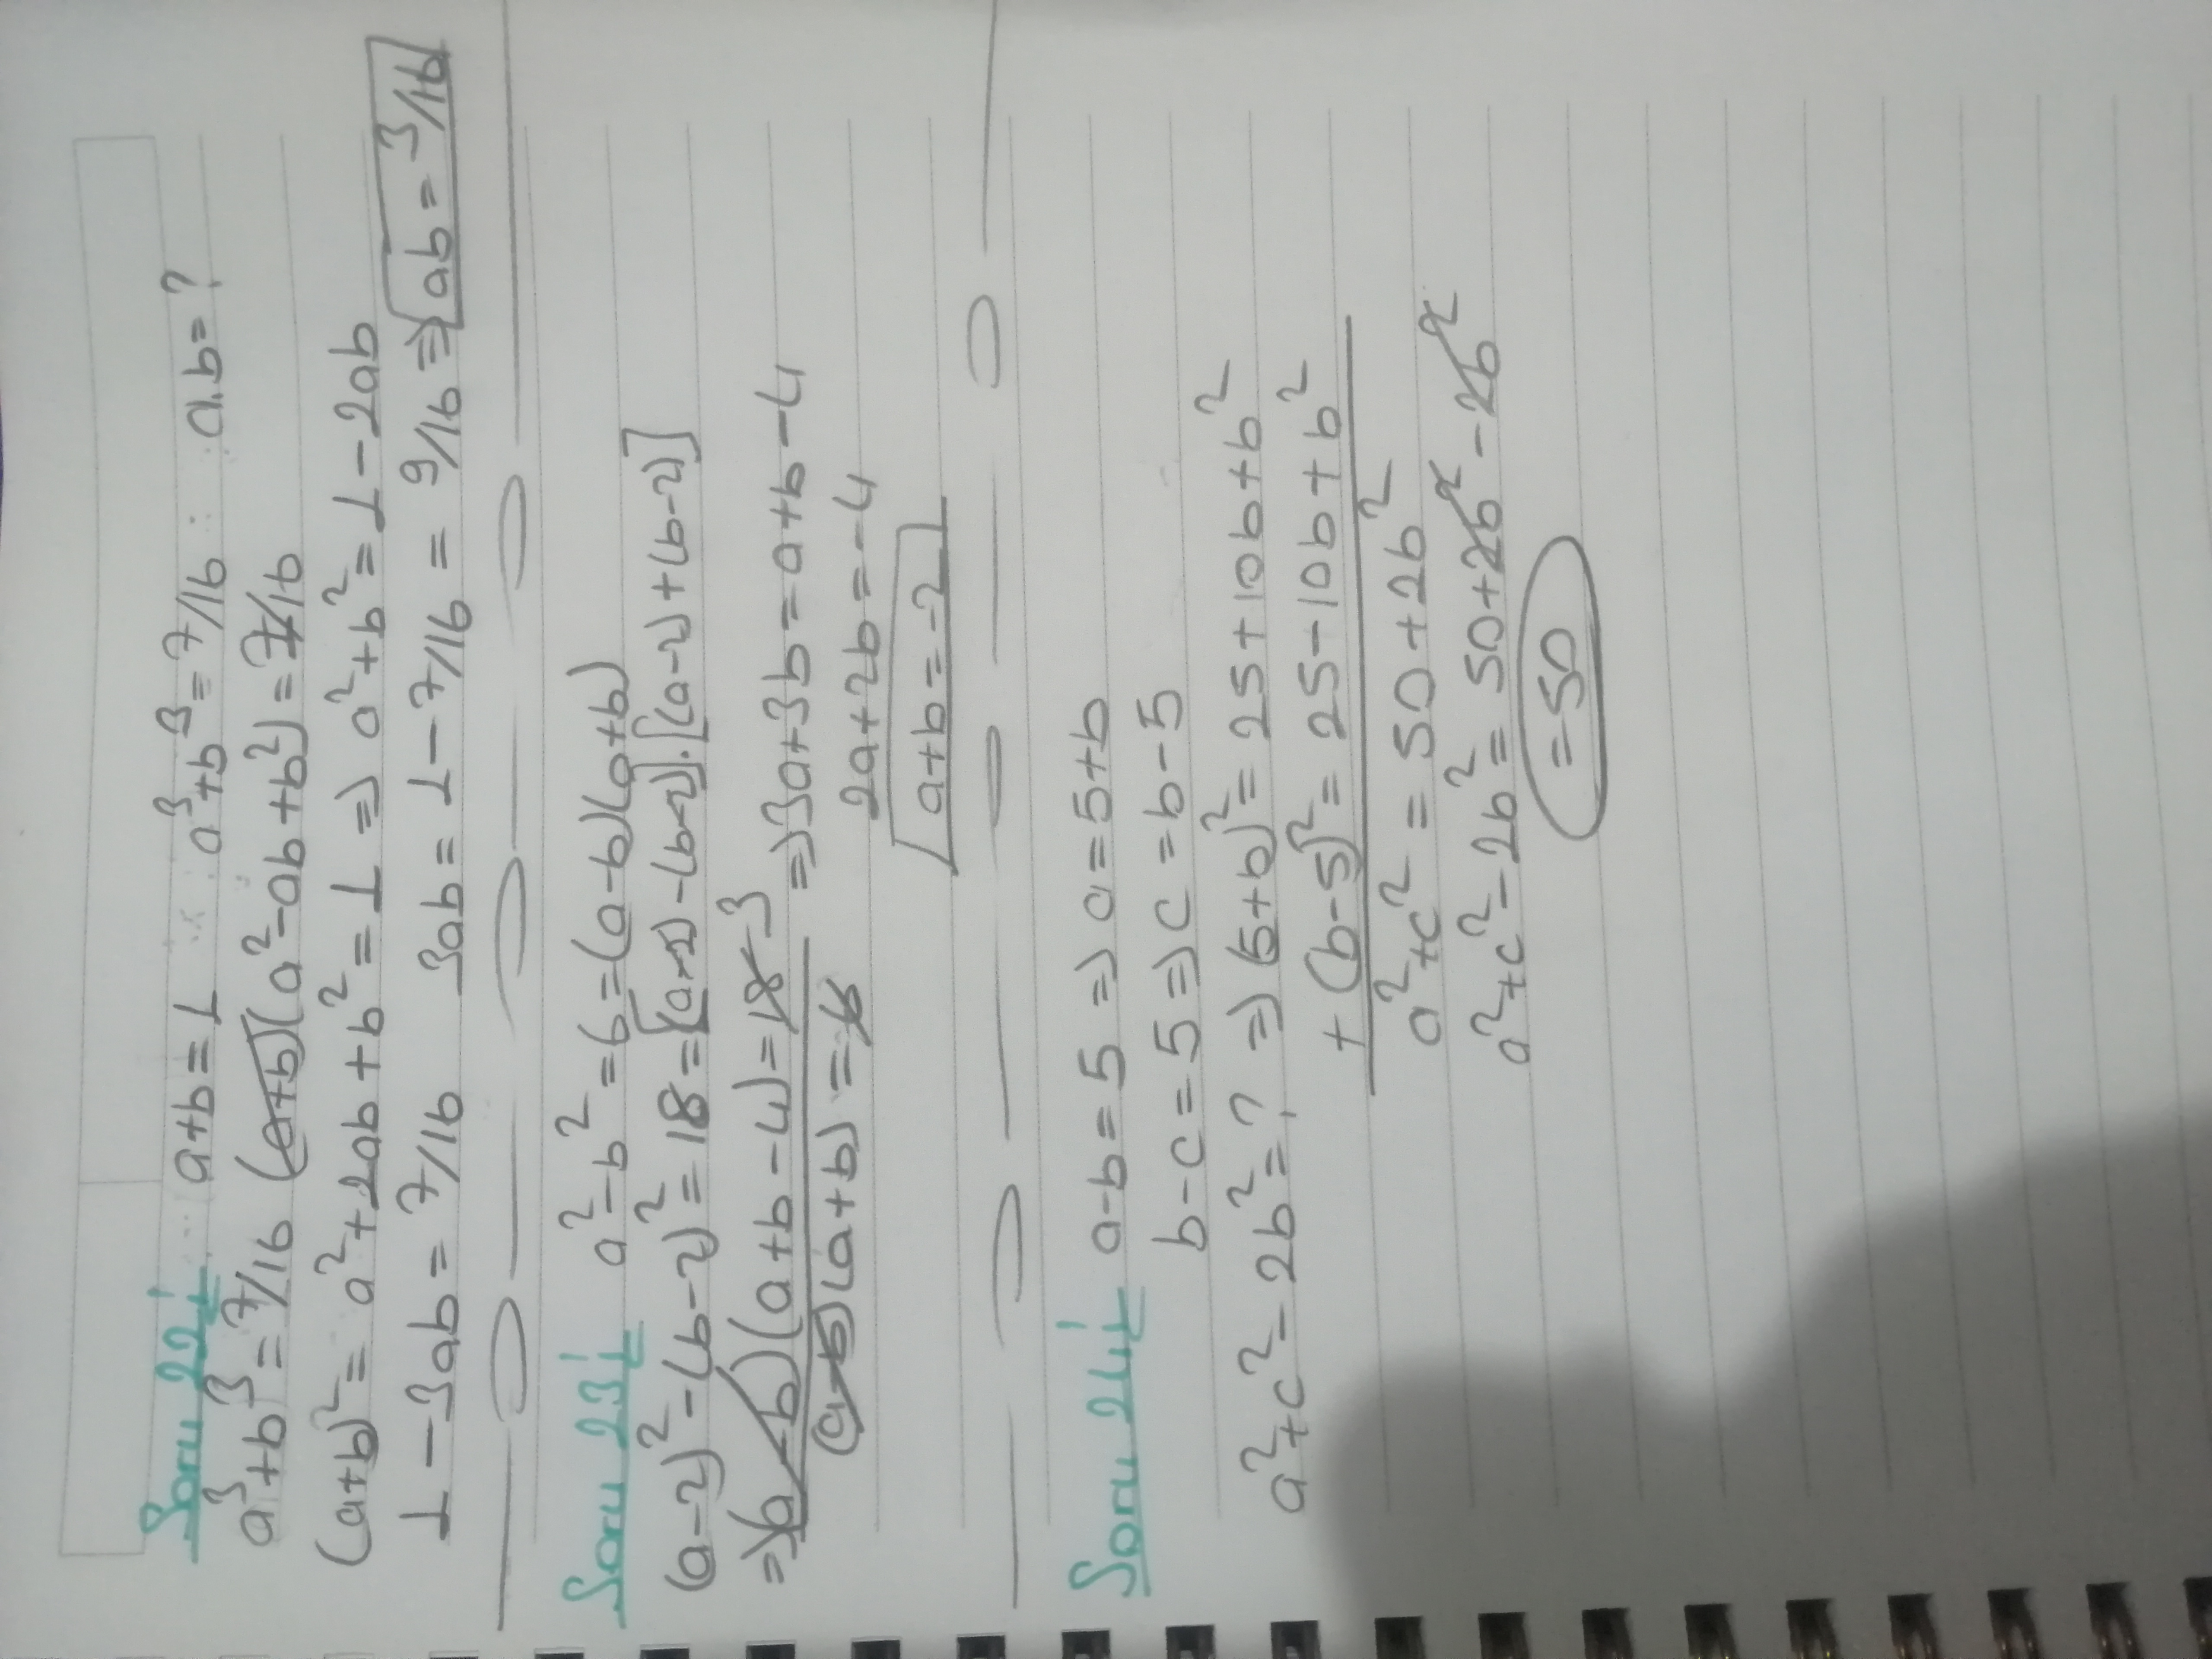 Soru 22: a+b=1 a³+b³=7/16 a.b=?
a³+b³=7/16 (a+b)(a²-ab+b²)=7/16
(a+b)²=a²+2ab+b²=1 => a²+b²=1-2ab
1-3ab=7/16 3ab=1-7/16=9/16 => ab=3/16
Soru 23: a²-b²=6=(a-b)(a+b)
(a-2)²-(b-2)²=18=[(a-2)-(b-2)].[(a-2)+(b-2)]
=>(a-b)(a+b-4)=18 3 => 3a+3b=a+b-4
(a-b)(a+b)=6 2a+2b=-4
a+b=-2
Soru 24: a-b=5 => a=5+b
b-c=5 => c=b-5
a²+c²-2b²=? => (5+b)²=25+10b+b²
+(b-5)²=25-10b+b²
a²+c²=50+2b²
a²+c²-2b²=50+2b²-2b²
=50